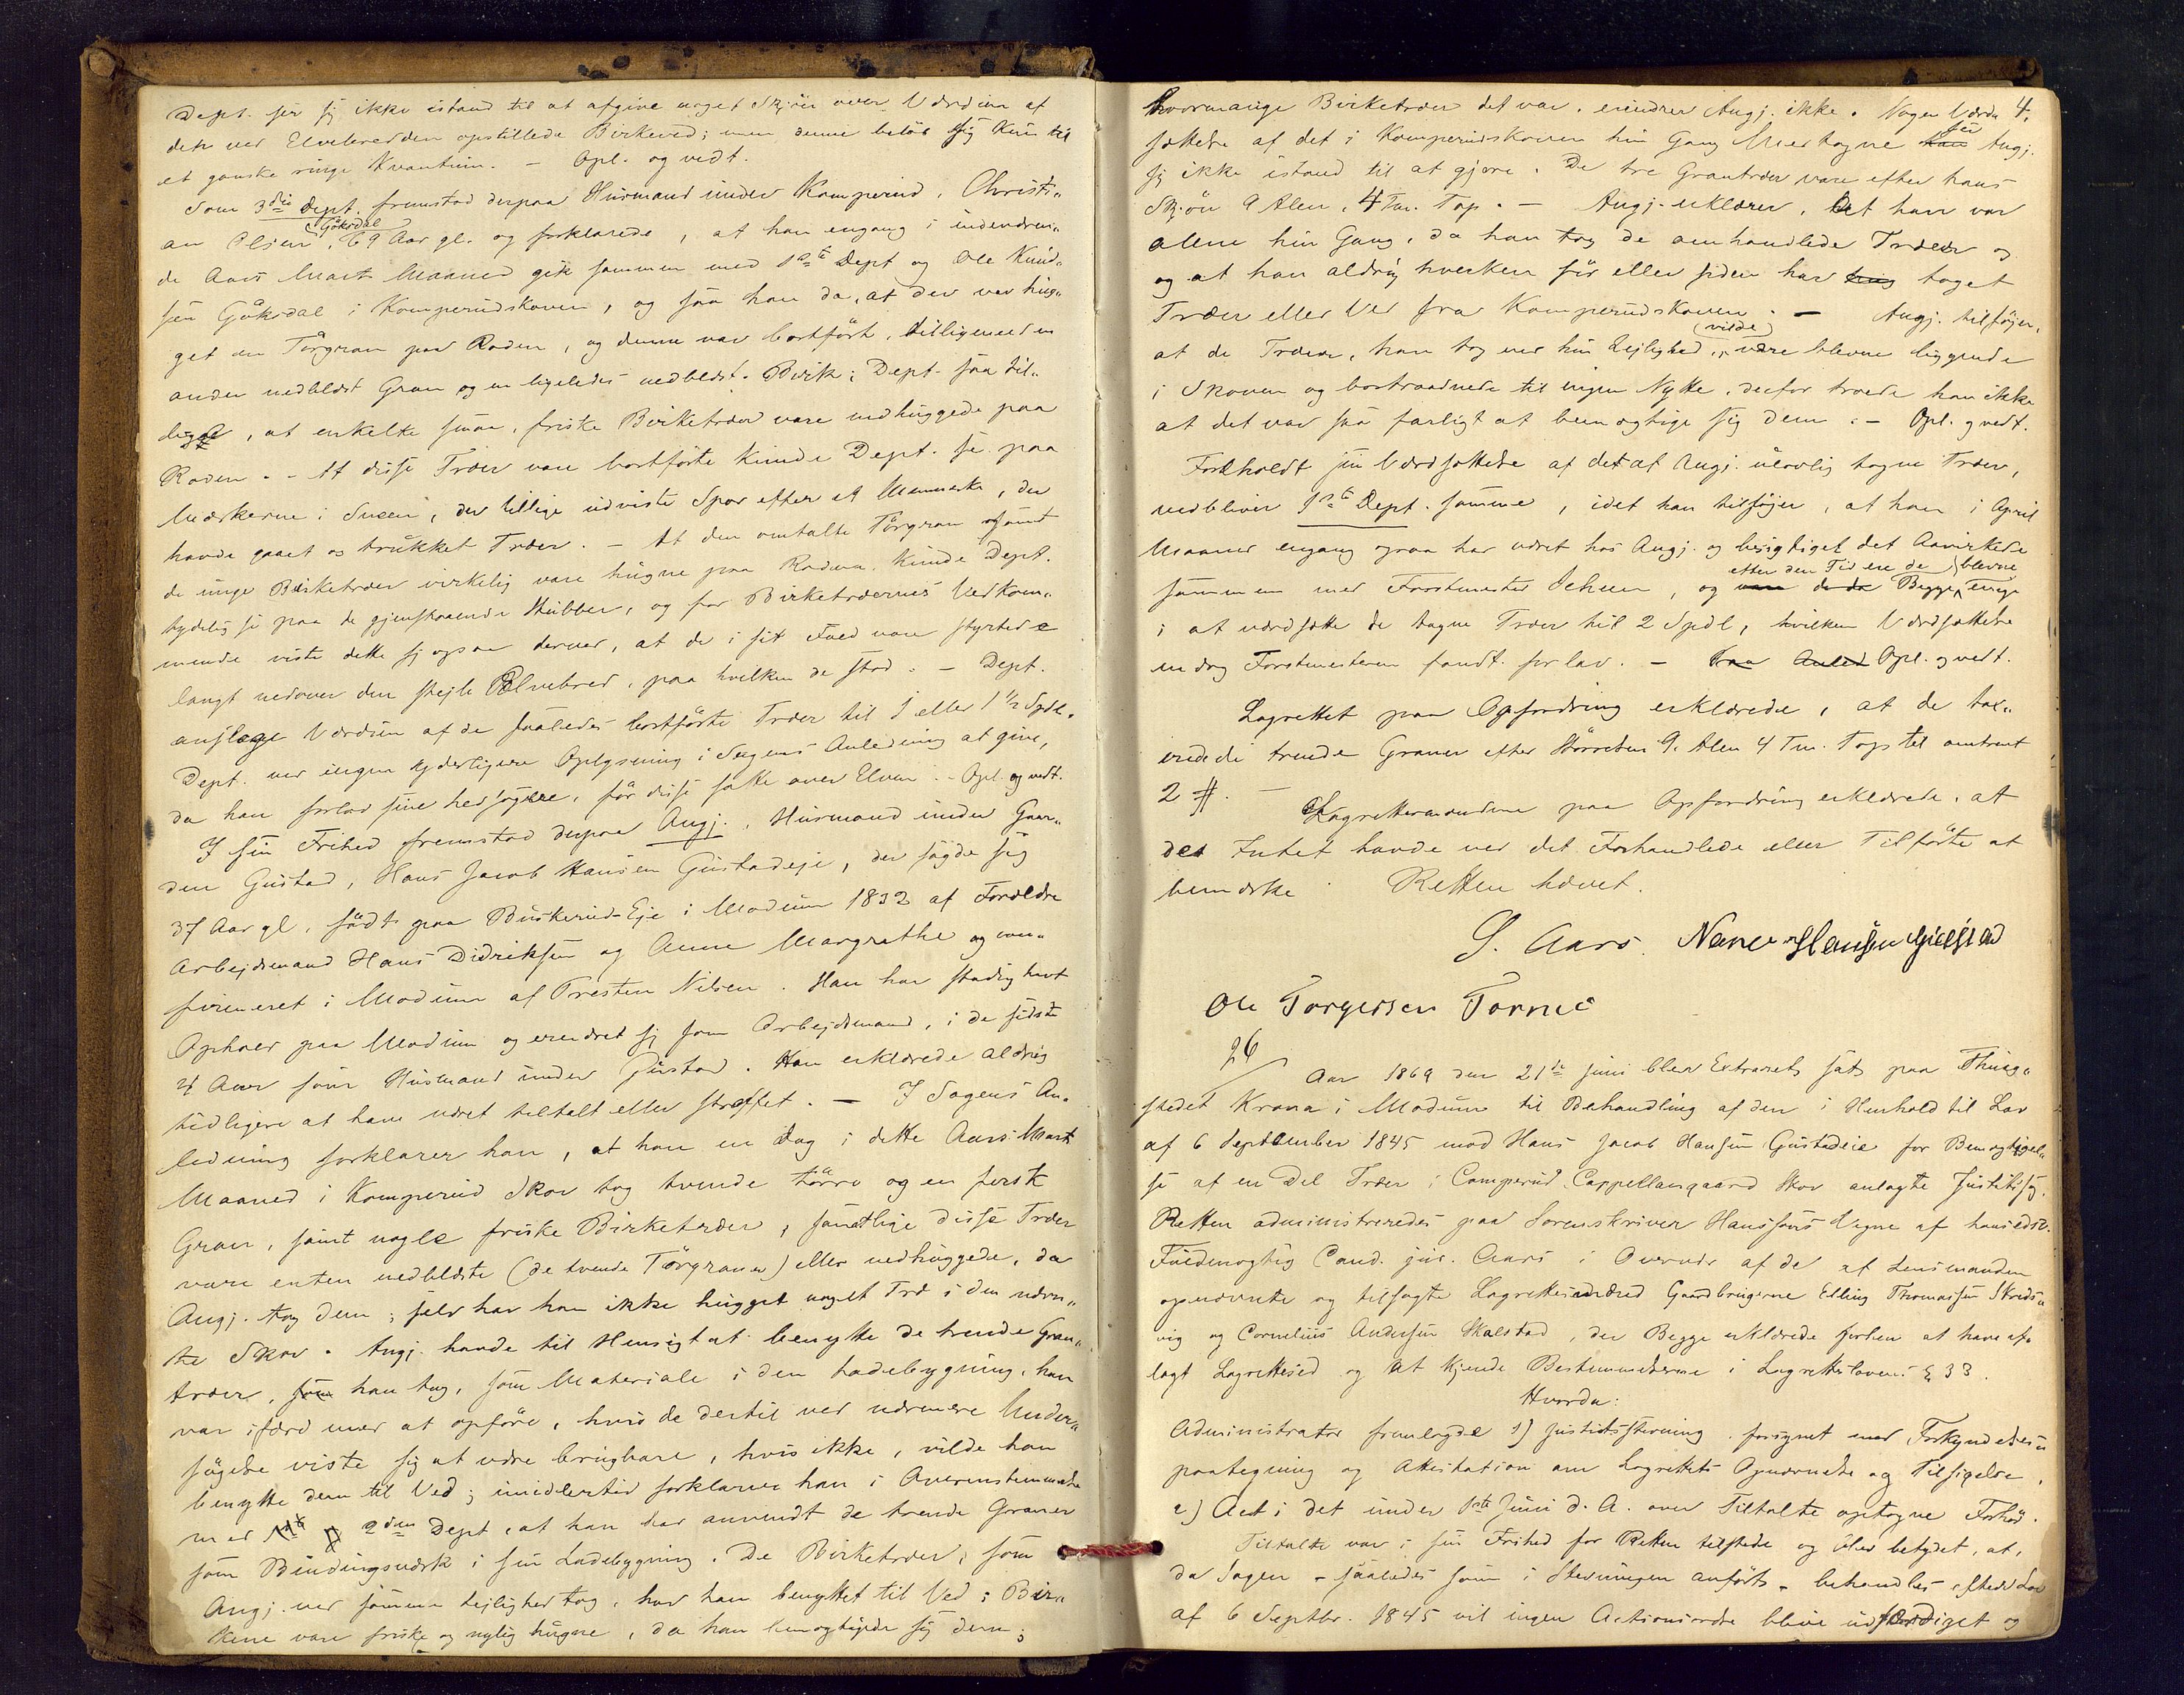 Dept. ser sig ikke istand til at afgive noget Skjön over Værdien af
den ved Elvebredden opstillede Birkeved; men denne belöb sig kun til
et ganske ringe Kvantum. – Opl. og vedt.
Som 3die Dept. fremstod derpaa Husmand under Komperud, Christi„
an Olsen Göksdal, 69 Aar gl. og forklarede, at han engang i indeværen„
de Aars Marts Maaned gik sammen med 1ste Dept og Ole Knud„
sen Göksdal i Komperudskoven, og saa han da, at der var hug„
get en Törgran paa Roden, og denne var bortfört, tilligemed en
anden nedblæst Gran og en ligeledes nedblæst Birk; Dept. saa til„
lige, at enkelte smaa, friske Birketræer vare nedhuggede paa
Roden. – At disse Træer vare bortförte kunde Dept. se paa
Mærkerne i Sneen, der tillige udviste Spor efter et Menneske, der
havde gaaet og trukket Træer. – At den omtalte Törgran samt
de unge Birketræer virkelig vare hugne paa Roden, kunde Dept.
tydelig se paa de gjenstaaende Stubber, og for Birketræernes Vedkom„
mende viste dette sig ogsaa derved, at de i sit Fald vare styrtede
langt nedover den steile Elvebred, paa hvilken de stod. – Dept.
anslage Værdien af de saaledes bortförte Træer til 1 eller 1½ Spdl.
Dept. ved ingen yderligere Oplysning i Sagens Anledning at give,
da han forlod sine Ledsagere, för disse satte over Elven. – Opl. og vedt.
I sin Frihed fremstod derpaa Angj., Husmand under Gaar„
den Gustad, Hans Jacob Hansen Gustadeje, der sagde sig
37 Aar gl., födt paa Buskerud-Eje i Modum 1832 af Forældre
Arbejdsmand Hans Didriksen og Anne Margrethe og con„
firmeret i Modum af Presten Nilsen. Han har stadig havt
Ophold paa Modum og ernæret sig som Arbejdsmand, i de sidste
4 Aar som Husmand under Gustad. Han erklærede aldrig
tidligere at have været tiltalt eller straffet. – I Sagens An„
ledning forklarer han, at han en Dag i dette Aars Marts
Maaned i Komperud Skov tog tvende törre og en fersk
Gran, samt nogle friske Birketræer, samtlige disse Træer
vare enten nedblæste (de tvende Törgraner) eller nedhuggede, da
Angj. tog dem; selv har han ikke hugget noget Træ i den nævn„
te Skov. Angj. havde til Hensigt at benytte de trende Gran„
træer, som han tog, som Materiale i den Ladebygning, han
var ifærd med at opföre, hvis de dertil ved nærmere Under„
sögelse viste sig at være brugbare, hvis ikke, vilde han
benytte dem til Ved; imidlertid forklarer han i Overenstemmelse
med 1ste og 2den Dept, at han har anvendt de trende Graner
som Bindingsværk i sin Ladebygning. De Birketræer, som
Angj. ved samme Lejlighed tog, har han benyttet til Ved; Bir„
kene vare friske og nylig hugne, da han bemægtigede sig dem;
4.
hvormange Birketræer det var, erindrer Angj. ikke. Nogen Værdi
sættelse af det i Komperudskoven hin Gang Medtagne han ser Angj.
sig ikke istand til at gjøre. De tre Grantræer vare efter hans
Skjön 9 Alen, 4 Tm. Top. – Angj. erklærer, at han var
alene hin Gang, da han tog de omhandlede Træer og
og at han aldrig hverken för eller siden har tag taget
Træer eller Ved fra Komperudskoven. – Angj. tilföjer,
at de Træer, han tog ved hin Lejlighed, (vilde) være blevne liggende
i Skoven og bortraadnede til ingen Nytte, derfor troede han ikke
at det var saa farligt at bemægtige sig dem. – Opl. og vedt.
Foreholdt sin Værdsættelse af det af Angj. ulovlig tagne Træer,
vedbliver 1ste Dept. samme, idet han tilföjer, at han i April
Maaned engang ogsaa har været hos Angj. og besigtiget det Aavirkede
sammen med Forstmester Scheen, og vare de da efter den Tid ere de Begge blevne enige
i at værdsætte de tagne Træer til 2 Spdl, hvilken Værdsættelse
endog Forstmesteren fandt for lav. – Paa Anled Opl. og vedt.
Lagrettet paa Opfordring erklærede, at de tax„
erede de trende Graner efter Störrelsen 9 Alen 4 Tm. Top til omtrent
2 ₶. –
Lagrettemændene paa Opfordring erklærede, at
de Intet havde ved det Forhandlede eller Tilförte at
bemærke. Retten hævet.
S. Aars. Hansen Gulstad
Ole Torgersen
26
Aar 1869 den 21de Juni blev Extraret sat paa Thing„
stedet Krona i Modum til Behandling af den i Henhold til Lov
af 6 September 1845 mod Hans Jacob Hansen Gustadeie for Bemægtigel„
se af en Del Træer i Komperud Cappellangaard Skov anlagte Justitssag.
Retten administreredes paa Sorenskriver Hanssons Vegne af hans edsv.
Fuldmægtig Cand. jur. Aars i Overvær af de af Lensmanden
opnævnte og tilsagte Lagrettesmænd Gaardbrugerne Elling Thomassen Skreds„
vig og Cornelius Andersen Skalstad, der Begge erklærede forhen at have af„
lagt Lagretteseed og at kjende Bestemmelserne i Lagrettesloven § 33.
Hvorda:
Administrator fremlagde 1) Justitsstevning forsynet med Forkyndelses„
paategning og Attestation om Lagrettets Opnævnelse og Tilsigelse,
2) Act i det under 1ste Juni d. A. over Tiltalte optagne Forhör.
Tiltalte var i sin Frihed for Retten tilstede og blev betydet, at,
da Sagen – saaledes som i Stevningen anfört – behandles efter Lov
af 6 Septbr. 1845 vil ingen Actionsordre blive udfærdiget og